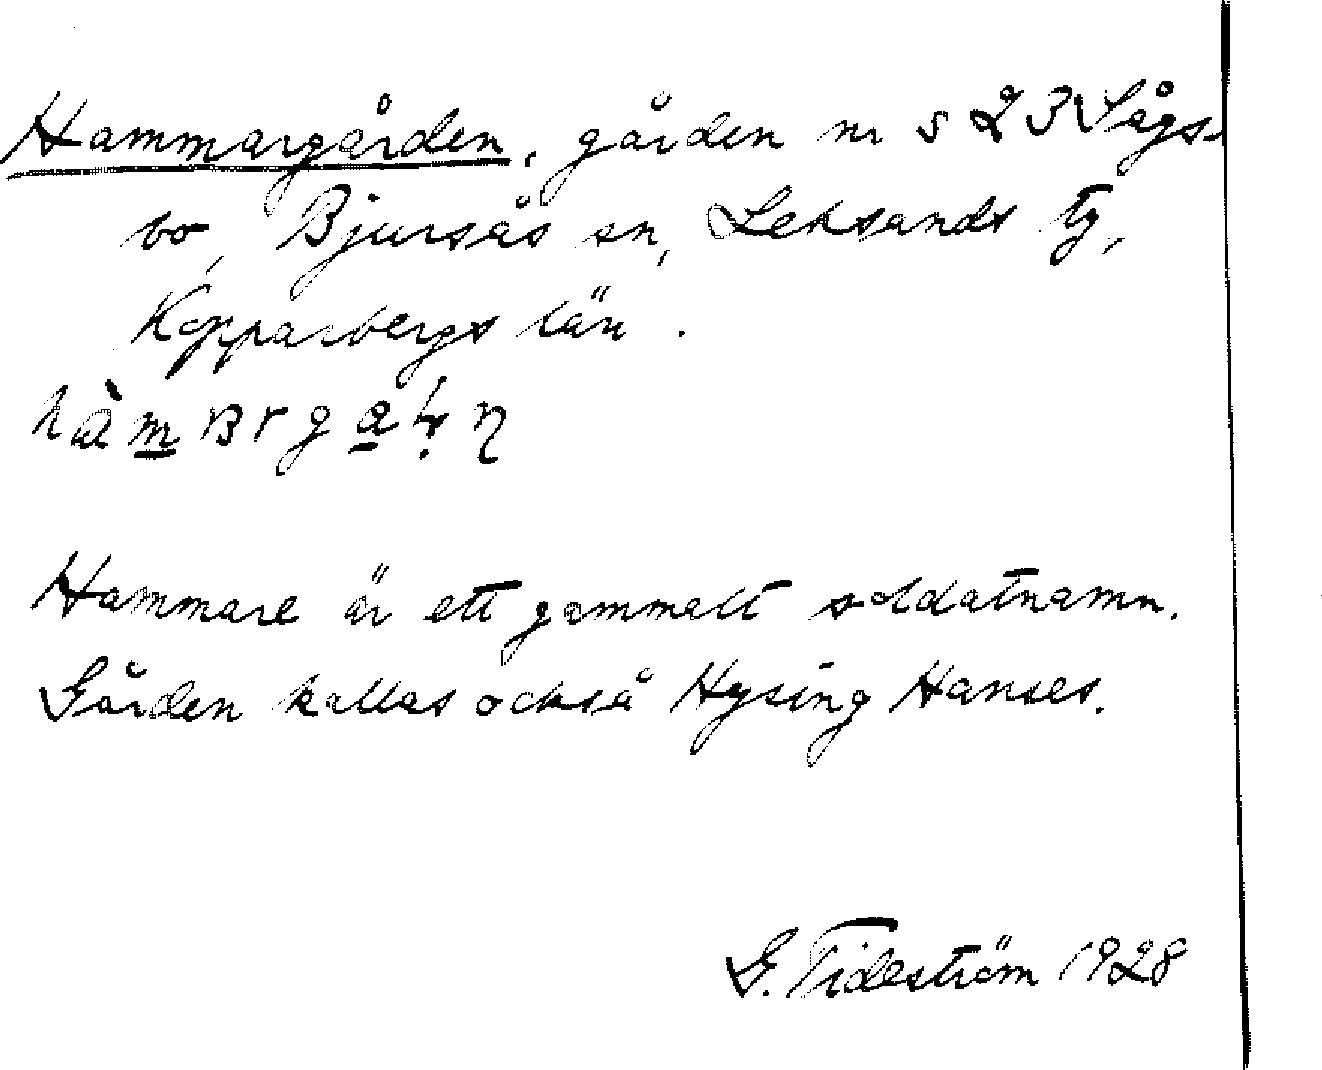 Hammargården, gården nr s 23 Sågs-
bo, Bjursås sn, Leksands tg,
Kopparbergs län.
Hammare är ett gammalt soldatnamn.
Gården kallas också Hysing Hanses.
G. Tideström 1928